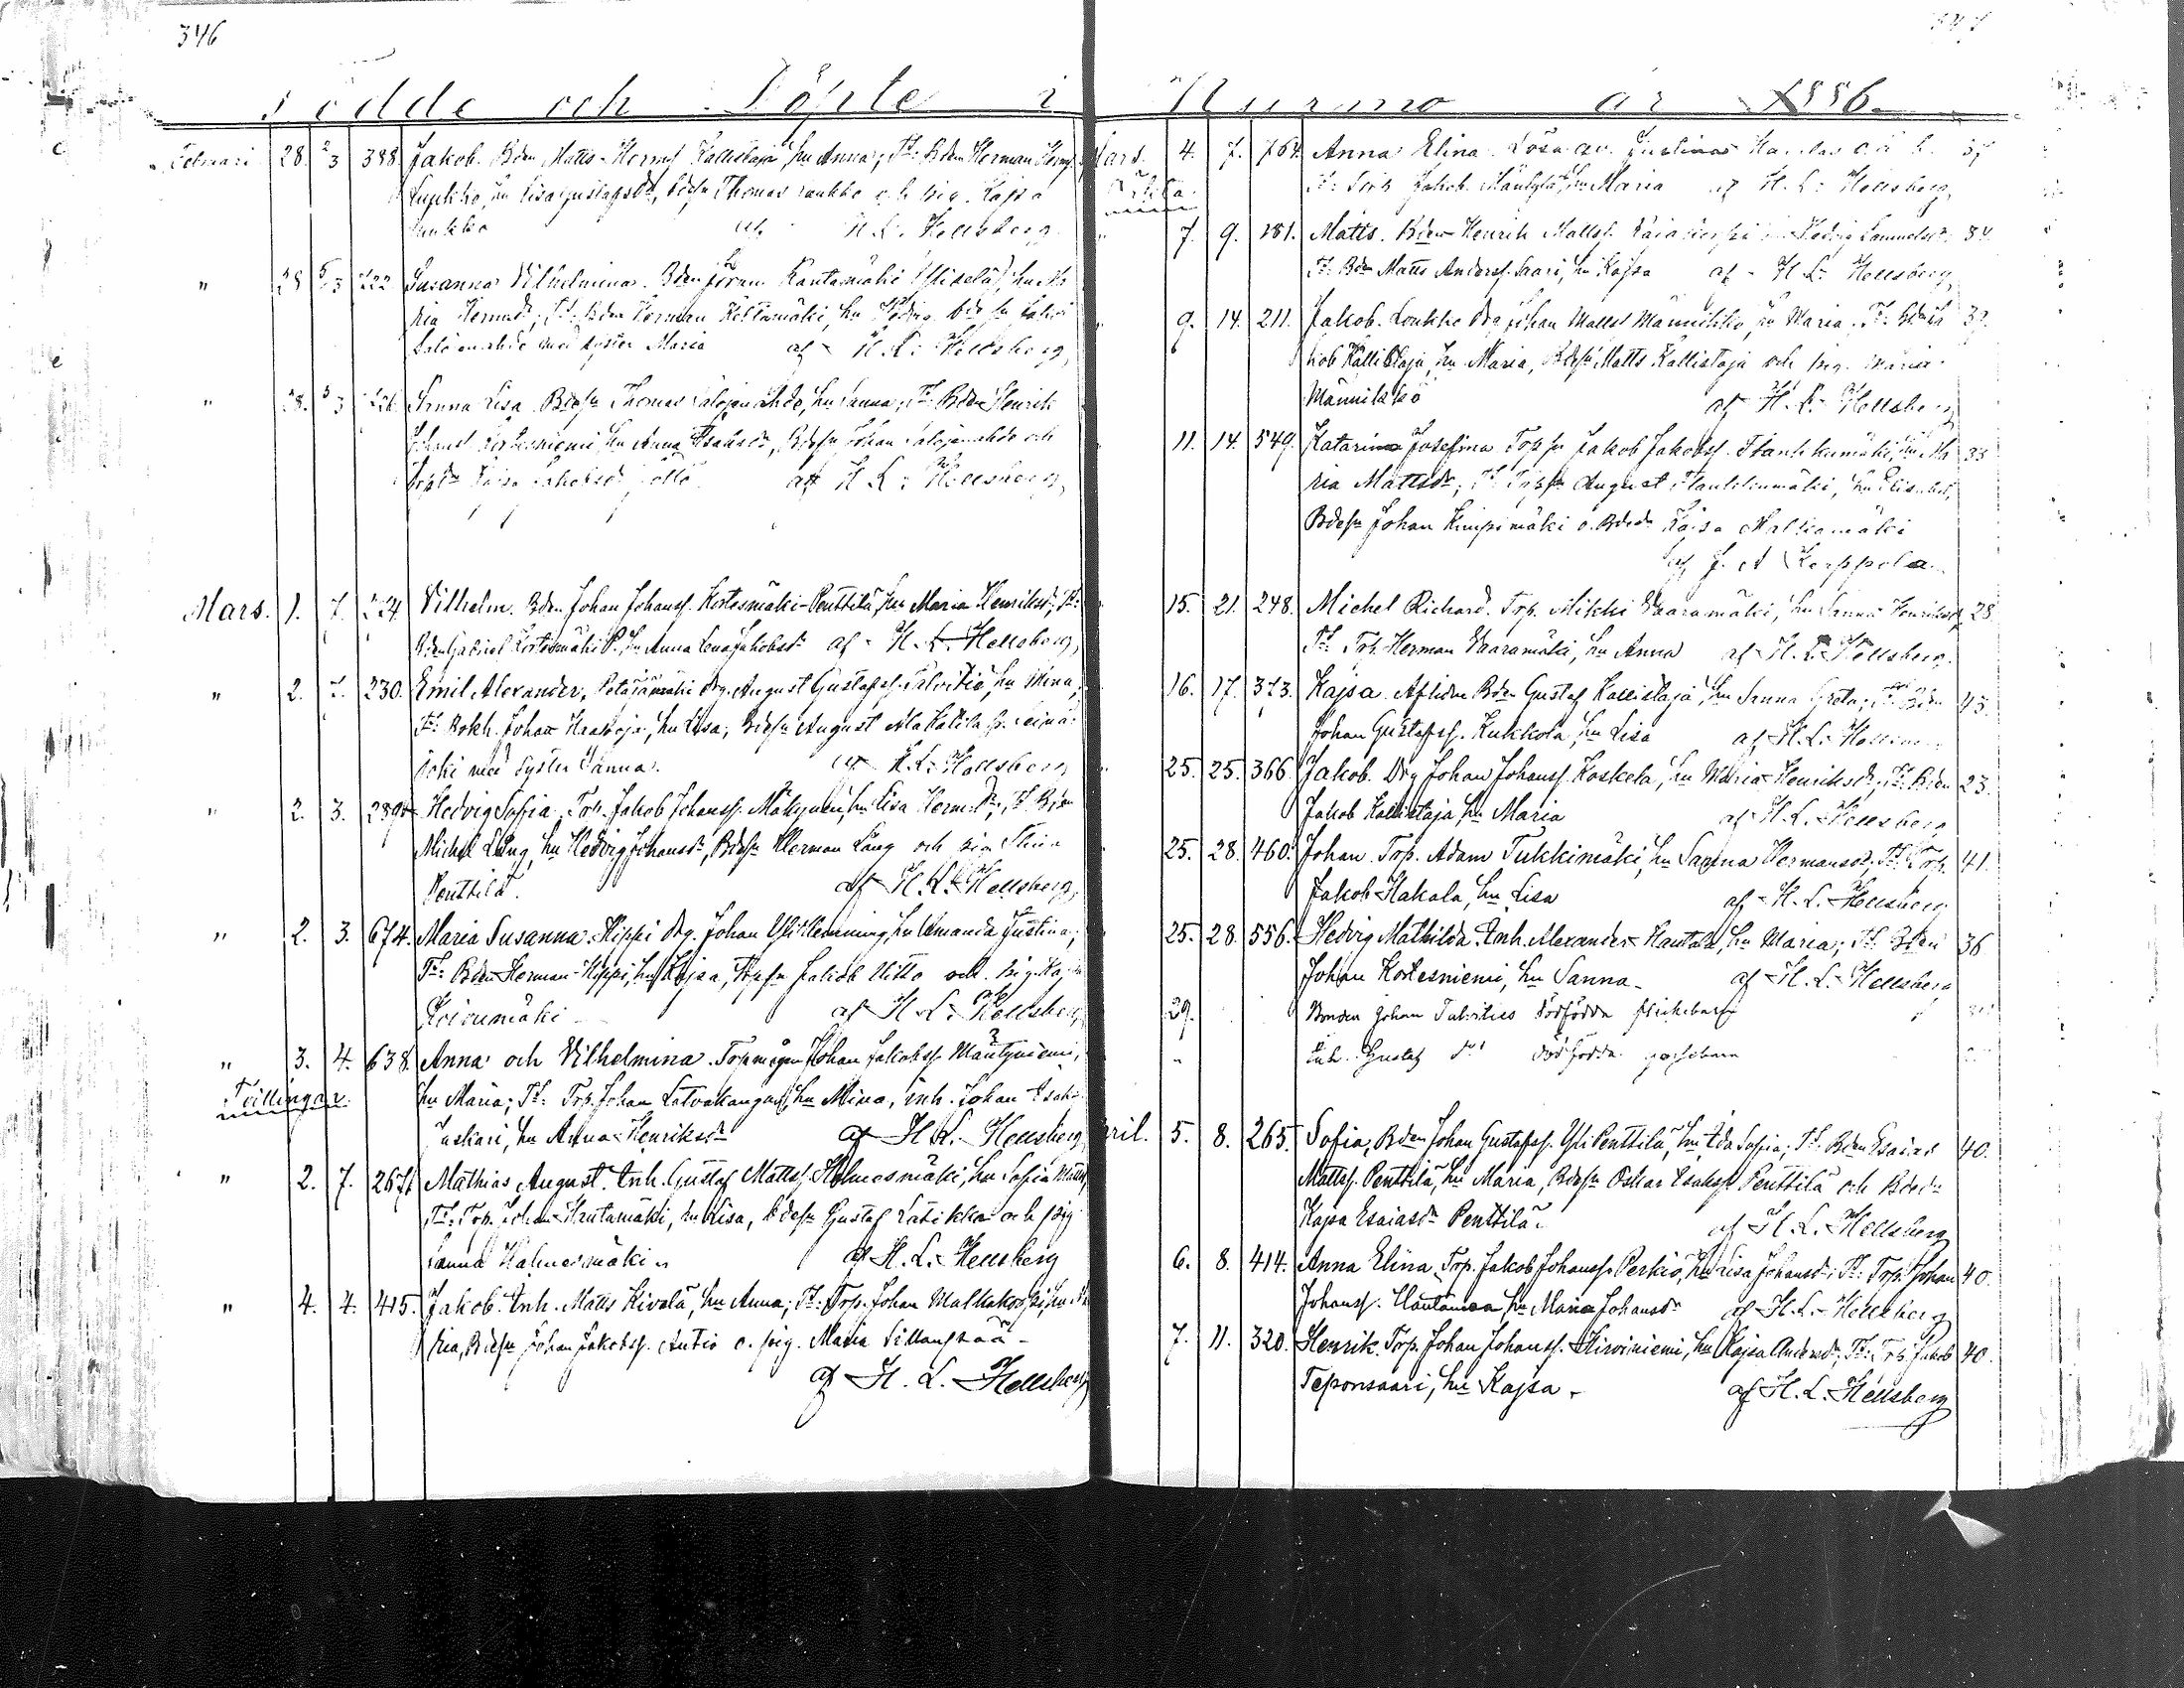 346
Födde och Döpte i
Februari 28. 2/3 388 Jakob. Bden Matts Hermss Kallistaja, hu Anna; Ft: Bden Herman Hermss
Luukko, hu Lisa Gustafsdr, Bdesn Thomas Luukko och pig. Kajsa
Luukko af H. L. Hellsberg
" 28 5/3 222 Susanna Vilhelmina. Bden Hautamäki hu Ma
ria Hermsdr; Ft: Bden Herman hu Hedvig
med syster Maria af H. L. Hellsberg
" 28. 5/3 Sanna Lisa Bdesn Thomas Salojenahde, hu Sanna; Ft: Bden Henrik
Kortesniemi hu Anna Isaksdr, Bdesn Johan Salojenahde och
Kajsa Jakobsdr af H. L. Hellsberg
Mars. 1. 7. 224 Vilhelm. Bden Johan Johanss. Kortesmäki-Penttilä, hu Maria Henriksdr; Ft:
Bden Gabriel Kortesmäki, hu Anna Lena Jakobsdr af H. L. Hellsberg
" 2. 7. 230. Emil Alexander. Petäjämäki drg. August Gustafss. Salvitie, hu Mina;
Ft: Bokh. Johan Haapoja, hu Lisa; Bdesn August Ala Kalila fr. Seinä
joki med syster Sanna. af H. L. Hellsberg
" 2. 3. 289 Hedvig Sofia. Trp. Jakob Johanss. Mäkynen, hu Lisa Hermsdr; Ft: Bden
Michel Lång, hu Hedvig Johansdr, Bdesn Herman Lång och pig Stina
Penttilä. af H. L. Hellsberg
" 2. 3. 674. Maria Susanna. Hippi drg. Johan Yliklemming, hu Amanda Justina;
Ft: Bden Herman Hippi, hu Kajsa, Trpsn Jakob Uitto och pig. Kajsa
Koivumäki af H. L. Hellsberg
" 3. 4. 638. Anna och Vilhelmina. Torpmågen Johan Jakobss Mäntyniemi,
Tvillingar. hu Maria; Ft: Trp. Johan Latvakangas, hu Mina, inh. Johan Isaks
Juskari, hu Anna Henriksdr af H. L. Hellsberg
" 2. 7. 267 Mathias August. Inh. Gustaf Mattss Holmesmäki, hu Sofia Mattsdr
Ft: Trp. Johan Hautamäki, hu Lisa, Bdesn Gustaf Latikka och pig
Sanna Holmesmäki af H. L. Hellsberg
" 4. 4. 415. Jakob. Inh. Matts Kivelä, hu Anna; Ft: Trp. Johan Malkakoski, hu Ma
ria, Bdesn Johan Jakobss. Autio o. pig. Maria Sillanpää
af H. L. Hellsberg
Nurmo år 1886.
Mars. 4. 7. 764 Anna Elina. Lösa qv. Justina 37
Oäkta. Ft: Jakob Mäntylä, hu Maria af H. L. Hellsberg
" 7. 9. 181. Matts. Bden Henrik Mattss. hu Hedvig Samuelsdr. 34.
Ft: Bden Matts Anderss. Saari, hu Kajsa af H. L. Hellsberg
" 9. 14. 211. Jakob. Loukko drg Johan Mattss Männikkö, hu Maria. Ft: Bden Ja 32.
kob Kallistaja, hu Maria, Bdesn Matts Kallistaja och pig. Maria
Männikkö af H. L. Hellsberg
" 11. 14. 549. Katarina Josefina Trpsn Jakob Jakobss. Haukkumäki, hu Ma 33
ria Mattsdr; Ft: Trpsn August Haukkumäki, hu Elisabet,
Bdesn Johan Kimpimäki o. Bdedr Kajsa Maltiamäki
af J. A. Kerppola
15. 21. 248. Michel Richard. Trp. Mikki Vaaramäki, hu Sanna Henriksdr 28
Ft: Trp. Herman Vaaramäki, hu Anna af H. L. Hellsberg.
16. 17. 373. Kajsa. Aflidne Bden Gustaf Kallistaja, hu Sanna Greta; Ft: Bden 45.
Johan Gustafss. Kukkola, hu Lisa af H. L. Hellsberg
25. 25. 366 Jakob. Drg Johan Johanss. Koskela, hu Maria Henriksdr; Ft: Bden 23.
Jakob Kallistaja hu Maria af H. L. Hellsberg
25. 28. 460. Johan. Trp. Adam Tukkimäki, hu Sanna Hermansdr; Ft: Trp. 41.
Jakob Hakala, hu Lisa af H. L. Hellsberg
25. 28. 556. Hedvig Mathilda. Inh. Alexander Hautala, hu Maria; Ft: Bden 36
Johan Kortesniemi, hu Sanna af H. L. Hellsberg
29. Bonden Johan Talvities dödfödda flickebarn
" Inh. Gustaf dödfödda gossebarn
April. 5. 8. 265. Sofia, Bden Johan Gustafss. Yli Penttilä, hu Ida Sofia; Ft: Bden Esaias 40.
Mattss. Penttilä, hu Maria, Bdesn Oskar Esaiss Penttilä och Bdedr
Kajsa Esaiasdr Penttilä. af H. L. Hellsberg
6. 8. 414. Anna Elina. Trp. Jakob Johanss. Perkiö, hu Lisa Johansdr; Ft: Trp. Johan 40.
Johanss. Hautamaa hu Maria Johansdr af H. L. Hellsberg
7. 11. 320. Henrik. Trp. Johan Johanss. Hirviniemi, hu Kajsa Andersdr; Ft: Trp. Jakob 40.
Teponsaari, hu Kajsa. af H. L. Hellsberg